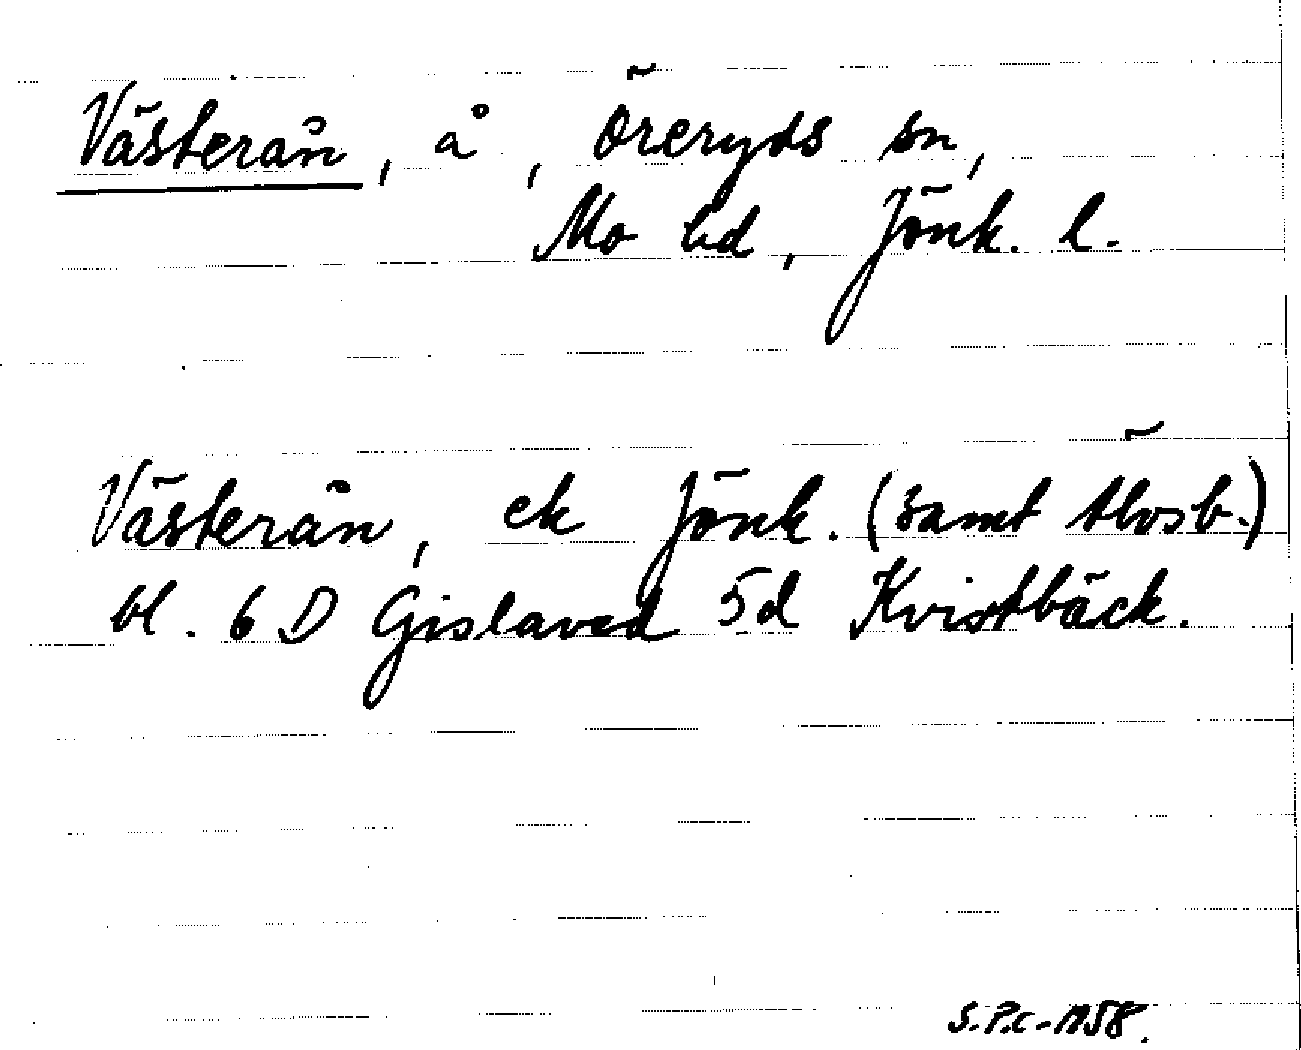 Västerån, å, Öreryds sn,
Mo hd, Jönk. l.
Västerån, ek Jönk. (samt Älvsb.)
bl. 6 D Gislaved 5d Kvistbäck.
S.P.C-1958.